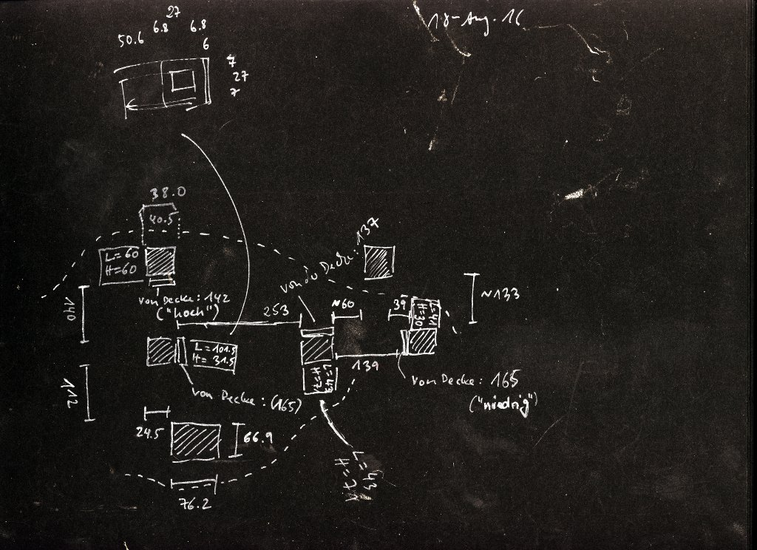 18-Aug. 16
27
6.8 6.8
50.6 6
7
27
7
38.0
40.5
137
L=60
H=60
von der Decke:
von Decke: 142
("hoch")
140
253
~60
39
~133
L=101.5
H= 31.5
139
von Decke: 165
("niedrig")
von Decke: (165)
112
24.5
66.9
76.2